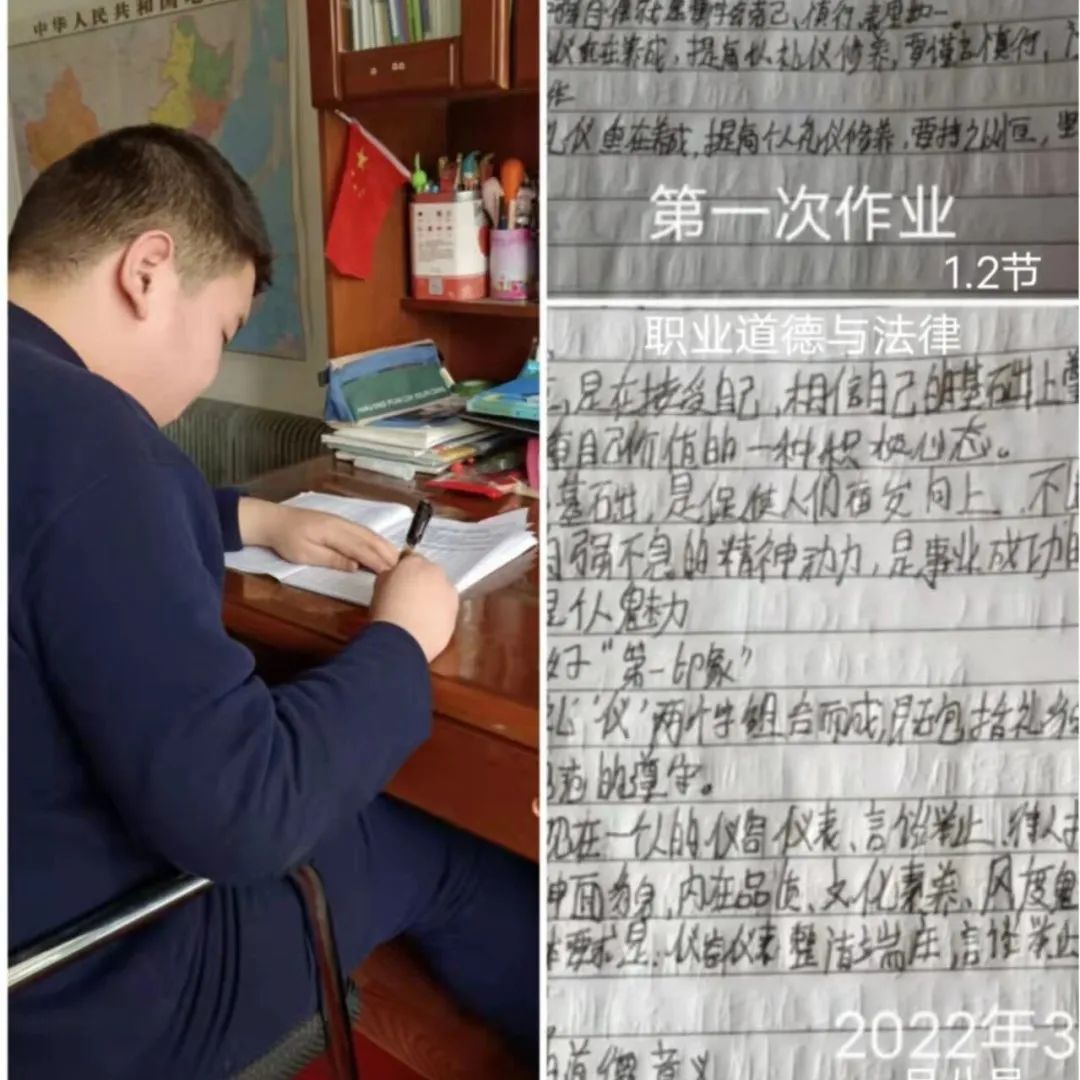 中华人民共和国地
仪重在养成,提高个人礼仪修养,要谨言慎行,
礼仪重在养成,提高个人礼仪修养,要持之以恒,坚
第一次作业
1.2节
职业道德与法律
,是在接受自己,相信自己的基础上
自己价值的一种积极心态。
基础,是促使人们奋发向上、不
自强不息的精神动力,是事业成功的
个人魅力
好“第一印象”
礼”“仪”两个字组合而成,包括礼
范的遵守。
现在一个人的仪容仪表、言谈举止、待人
神面貌,内在品质、文化素养、风度
要求是:仪容仪表整洁端庄,言谈举止
2022年3
意义